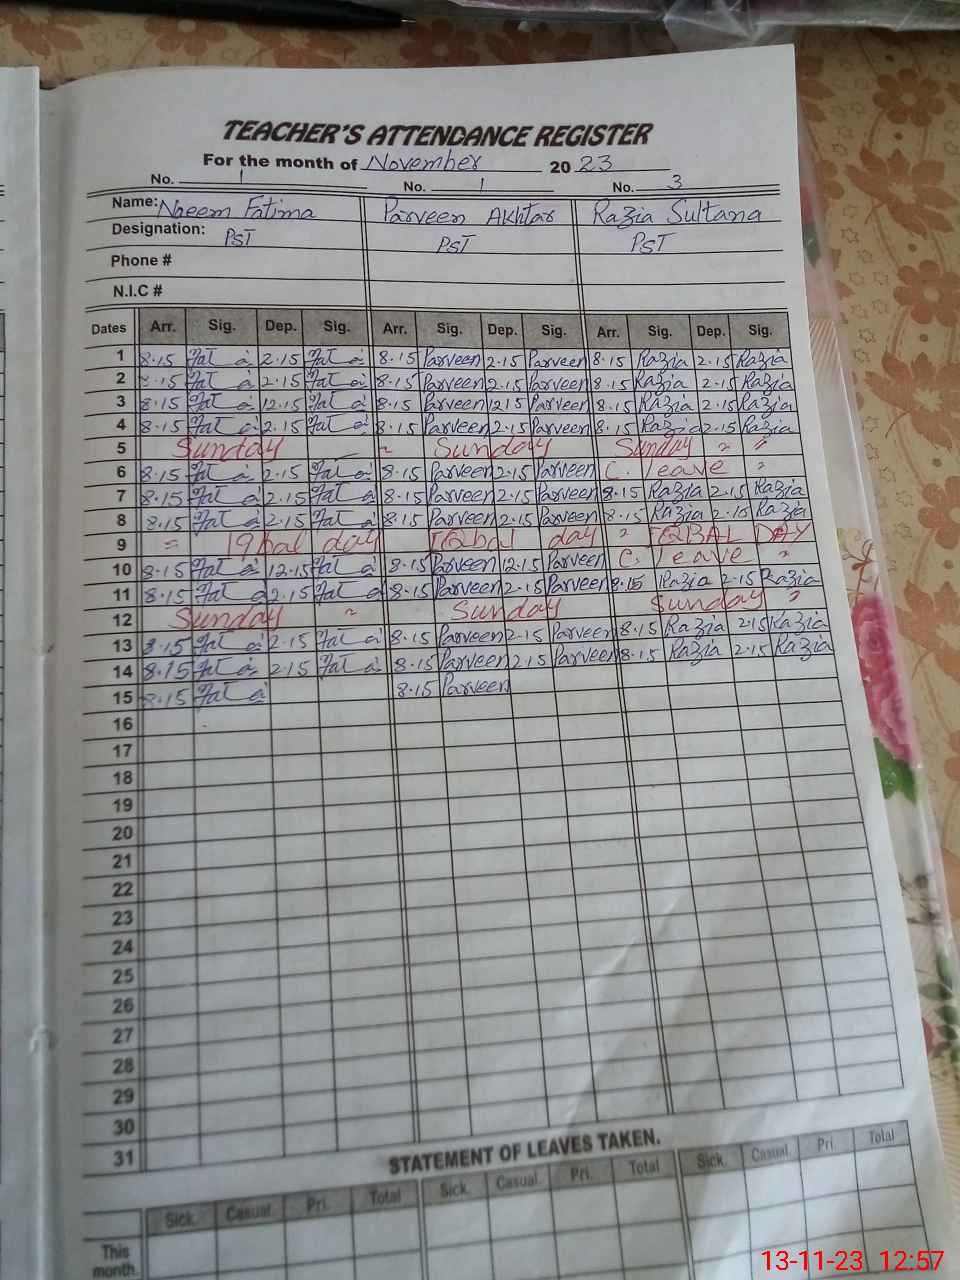 TEACHER'S ATTENDANCE REGISTER
For the month of November 2023
No. 1 No. 1 No. 3
Name: Naeem Fatima Parveen Akhtar Razia Sultana
Designation: PST PST PST
Phone #
N.I.C #
Dates Arr. Sig. Dep. Sig. Arr. Sig. Dep. Sig. Arr. Sig. Dep. Sig.
1 8.15 2.15 8.15 Parveen 2.15 Parveen 8.15 Razia 2.15 Razia
2 8.15 2.15 8.15 Parveen 2.15 Parveen 8.15 Razia 2.15 Razia
3 8.15 12.15 8.15 Parveen 1215 Parveen 8.15 Razia 2.15 Razia
4 8.15 2.15 8.15 Parveen 2.15 Parveen 8.15 Razia 2.15 Razia
5 Sunday Sunday Sunday " "
6 8.15 2.15 8.15 Parveen 2.15 Parveen C. leave "
7 8.15 2.15 8.15 Parveen 2.15 Parveen 8.15 Razia 2.15 Razia
8 8.15 2.15 8.15 Parveen 2.15 Parveen 8.15 Razia 2.15 Razia
9 = Iqbal day IQbal day " IQBAL DAY
10 8.15 12.15 8.15 Parveen 12.15 Parveen C. leave "
11 8.15 2.15 8.15 Parveen 2.15 Parveen 8.15 Razia 2.15 Razia
12 Sunday " Sunday Sunday "
13 8.15 2.15 8.15 Parveen 2.15 Parveen 8.15 Razia 215 Razia
14 8.15 215 8.15 Parveen 2.15 Parveen 8.15 Razia 2.15 Razia
15 8.15 8.15 Parveen
16
17
18
19
20
21
22
23
24
25
26
27
28
29
30
31
STATEMENT OF LEAVES TAKEN.
Sick. Casual. Pri. Total Sick. Casual. Pri. Total Sick. Casual. Pri. Total
This
month.
13-11-23 12:57